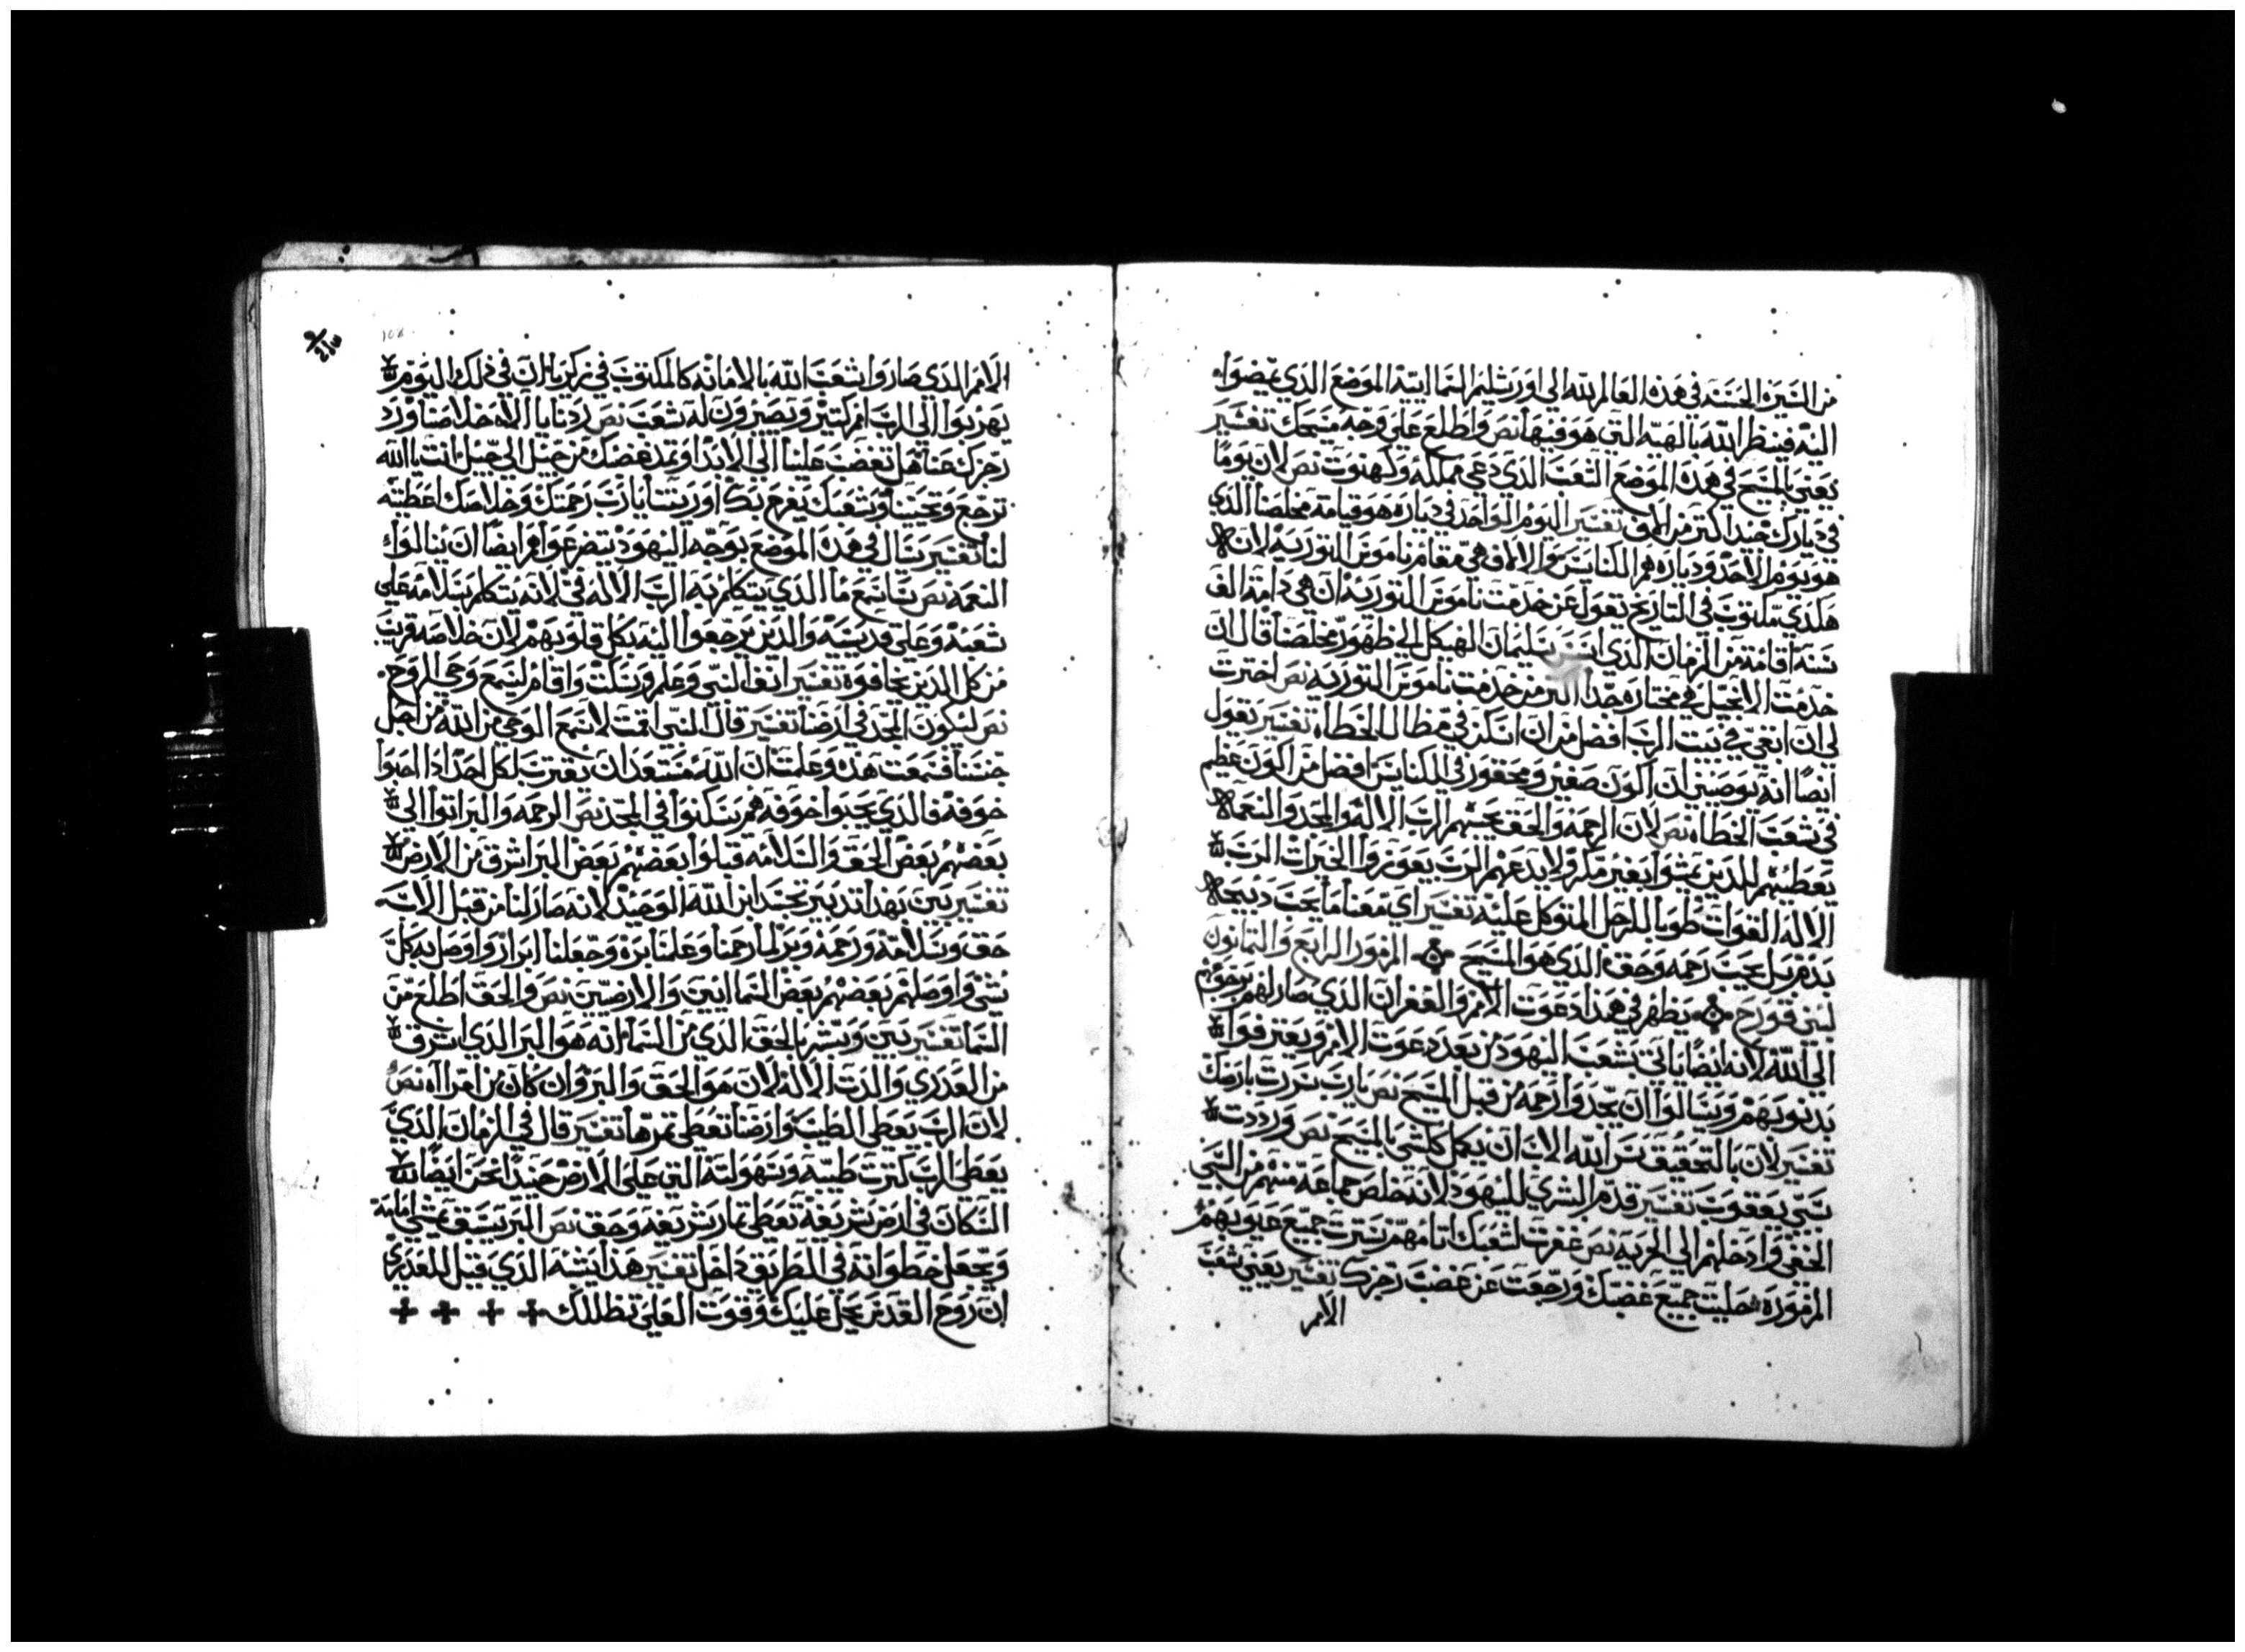 من السيرة الحسنه في هذه العالم لله الي اورشليم السماايية الموضع الذي يمضوا
اليه فينظر الله بالهيه التي هو فيها نص واطلع علي وجه مسيحك تفسير
يعني بالمسيح في هذه الموضع الشعب الذي دعي مملكه وكهنوت نص لان يوما
في ديارك خيدا اكتر من الوف تفسير اليوم الواحد في دياره هو قيامة مخلصنا الذي
هو يوم الاحد ودياره هم الكنايس والالاف هي مقام ناموس التوريه لان
هكدي مكتوب في التاريخ تقول عن خدمت ناموس التوريه ان هي دامة الف
سنه اقامة من الزمان الذي ابني سليمان الهيكل الي ظهور مخلصنا قال ان
خدمت الانجيل هي مختاره جدا اكتر من خدمت ناموس التوريه نص اخترت
لي ان اتقي في بيت الرب افضل من ان اسكن في مطال الخطاه تفسير يقول
ايضا انه يوصيني ان اكون صغير ومحقور في الكنايس افضل من اكون عظيم
في شعب الخطاه نص لان الرحمه والحق يحبهم الرب الاله والمجد والنعماه
يعطيهم للذين يمشوا بغير مكر ولا يدعهم الرب يعوزوا الخيرات الرب
الاله القوات طوبا للرجل المتوكل عليه تفسير اي معنا ما يحب دبيحاه
بدم بل يحب رحمه وحق الذي هو المسيح المزمور الرابع والتمانون
لبني قورح يظهر في هذا دعوت الامم والغفران الذي صار لهم برجوعهم
الي الله لانه ايضا ياتي بشعب اليهود من بعد دعوت الامم ويعترفوا
بدنوبهم ويسالوا ان يجدوا رحمه من قبل المسيح نص يارب سررت بارضك
تفسير لان بالتحقيق سر الله الاب ان يكمل كلشي بالمسيح نص ورددت
سبي يعقوب تفسير قدم البشري لليهود لانه خلص جماعة منهم من السبي
الحقي وادخلهم الي الحريه نص غفرت لشعبك اتامهم سترت جميع عيوبهم
المزموره حليت جميع غضبك ورجعت عن غضب رجزك تفسير يعني شعب
الامم
108
الامم الذي صاروا شعب الله بالامانه كالمكتوب في زكريا ان في ذلك اليوم
يهربوا الي الرب امم كتير ويصيرون له شعب نص ردنا يا الاه خلاصنا ورد
رجزك عنا هل تغضب علينا الي الابد او تمد غضبك من جيل الي جيل انت يا الله
ترجع وتحيينا وشعبك يفرح بك اورينا يارب رحمتك وخلاصك اعطيه
لنا تفسير يسال في هذه الموضع بوجه اليهود يتضرعوا هم ايضا ان ينالوا
النعمه نص سانسمع ما الذي يتكلم به الرب الاله في لانه يتكلم بسلامه علي
شعبه وعلي قديسه والذين يرجعوا اليه بكل قلوبهم لان خلاصه قريب
من كل الدين يخافوه تفسير اتقا النبي وعلم وسكت واقام ليسمع وحي الروح
نص لتكون المجد في ارضنا تفسير قال النبي اقمت لاسمع الوحي من الله من اجل
جنسنا فسمعت هذه وعلمت ان الله مستعد ان يقترب لكل احد ادا احبوا
خوفه فالذي يحبوا خوفه هم يسكنوا في المجد نص الرحمه والبر اتوا الي
بعضهم بعض الحق والسلامه قبلوا بعضهم بعض البر اشرق من الارض
تفسير بين بهذا تدبير تجسد ابن الله الوحيد لانه صار لنا من قبل الاب
حق وسلامة ورحمة وبر لما رحمنا وعلمنا بره وجعلنا ابرار واوصل به كل
شي واوصلهم بعضهم بعض السماايين والارضيين نص والحق اطلع من
السما تفسير بين وبشر بالحق الذي من السما انه هو البر الذي اشرق
من العدري والدت الاله لان هو الحق والبر وان كان من امراه نص
لان الرب يعطي الطيب وارضنا تعطي تمرها تفسير قال في الزمان الذي
يعطي الرب كترت طيبه وسهولته التي علي الارض حينيد نحن ايضا
السكان في ارض شريفة تعطي تمار شريعه وحق نص البر يسبق يمشي امامه
ويجعل خطواته في الطريق داخل تفسير هذا يشبه الذي قيل للعدري
ان روح القدس يحل عليك وقوت العلي تظللك